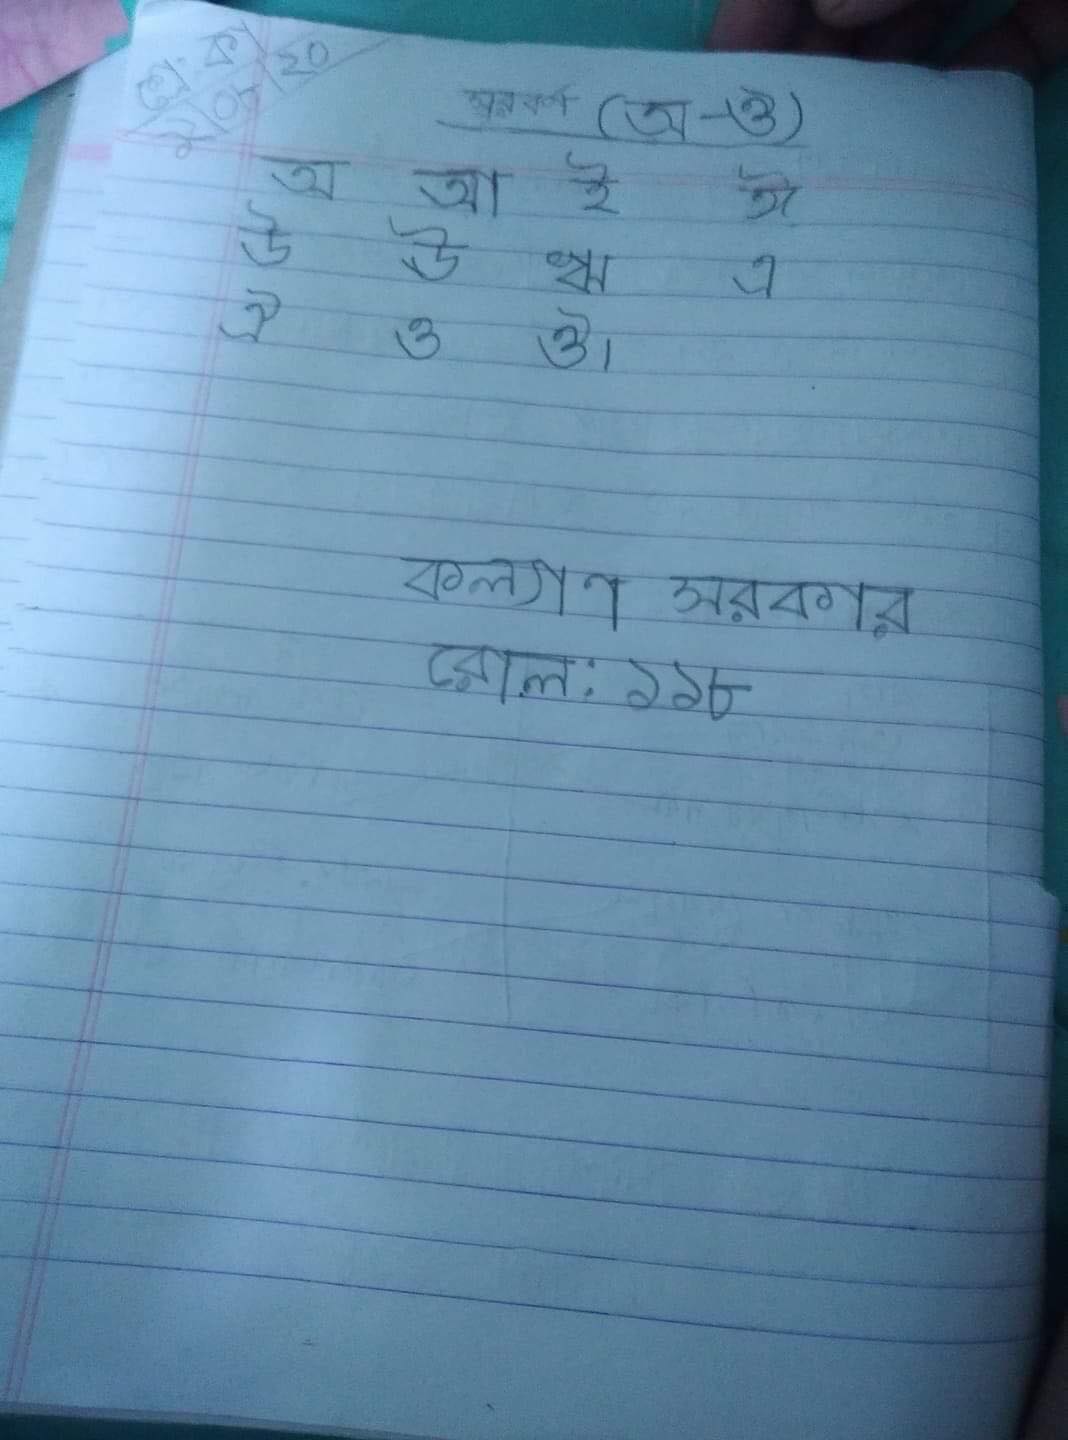 শ্রে: ক
স্বরবর্ণ (অ-ঔ)
অ আ ই ঈ
উ ঊ ঋ এ
ঐ ও ঔ।
কল্যাণ সরকার
রোল: ১১৮